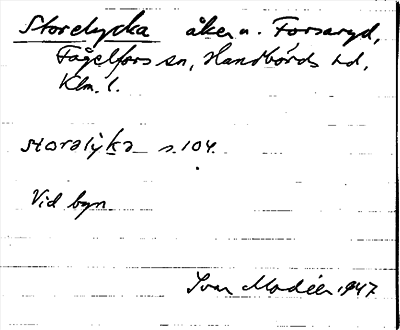 Storelycka åkern. Forsaryd,
Fågelfors sn, Handbörds hd,
Klm. l.
storalýka s. 104.
Vid byn
Ivar Modéer 1947